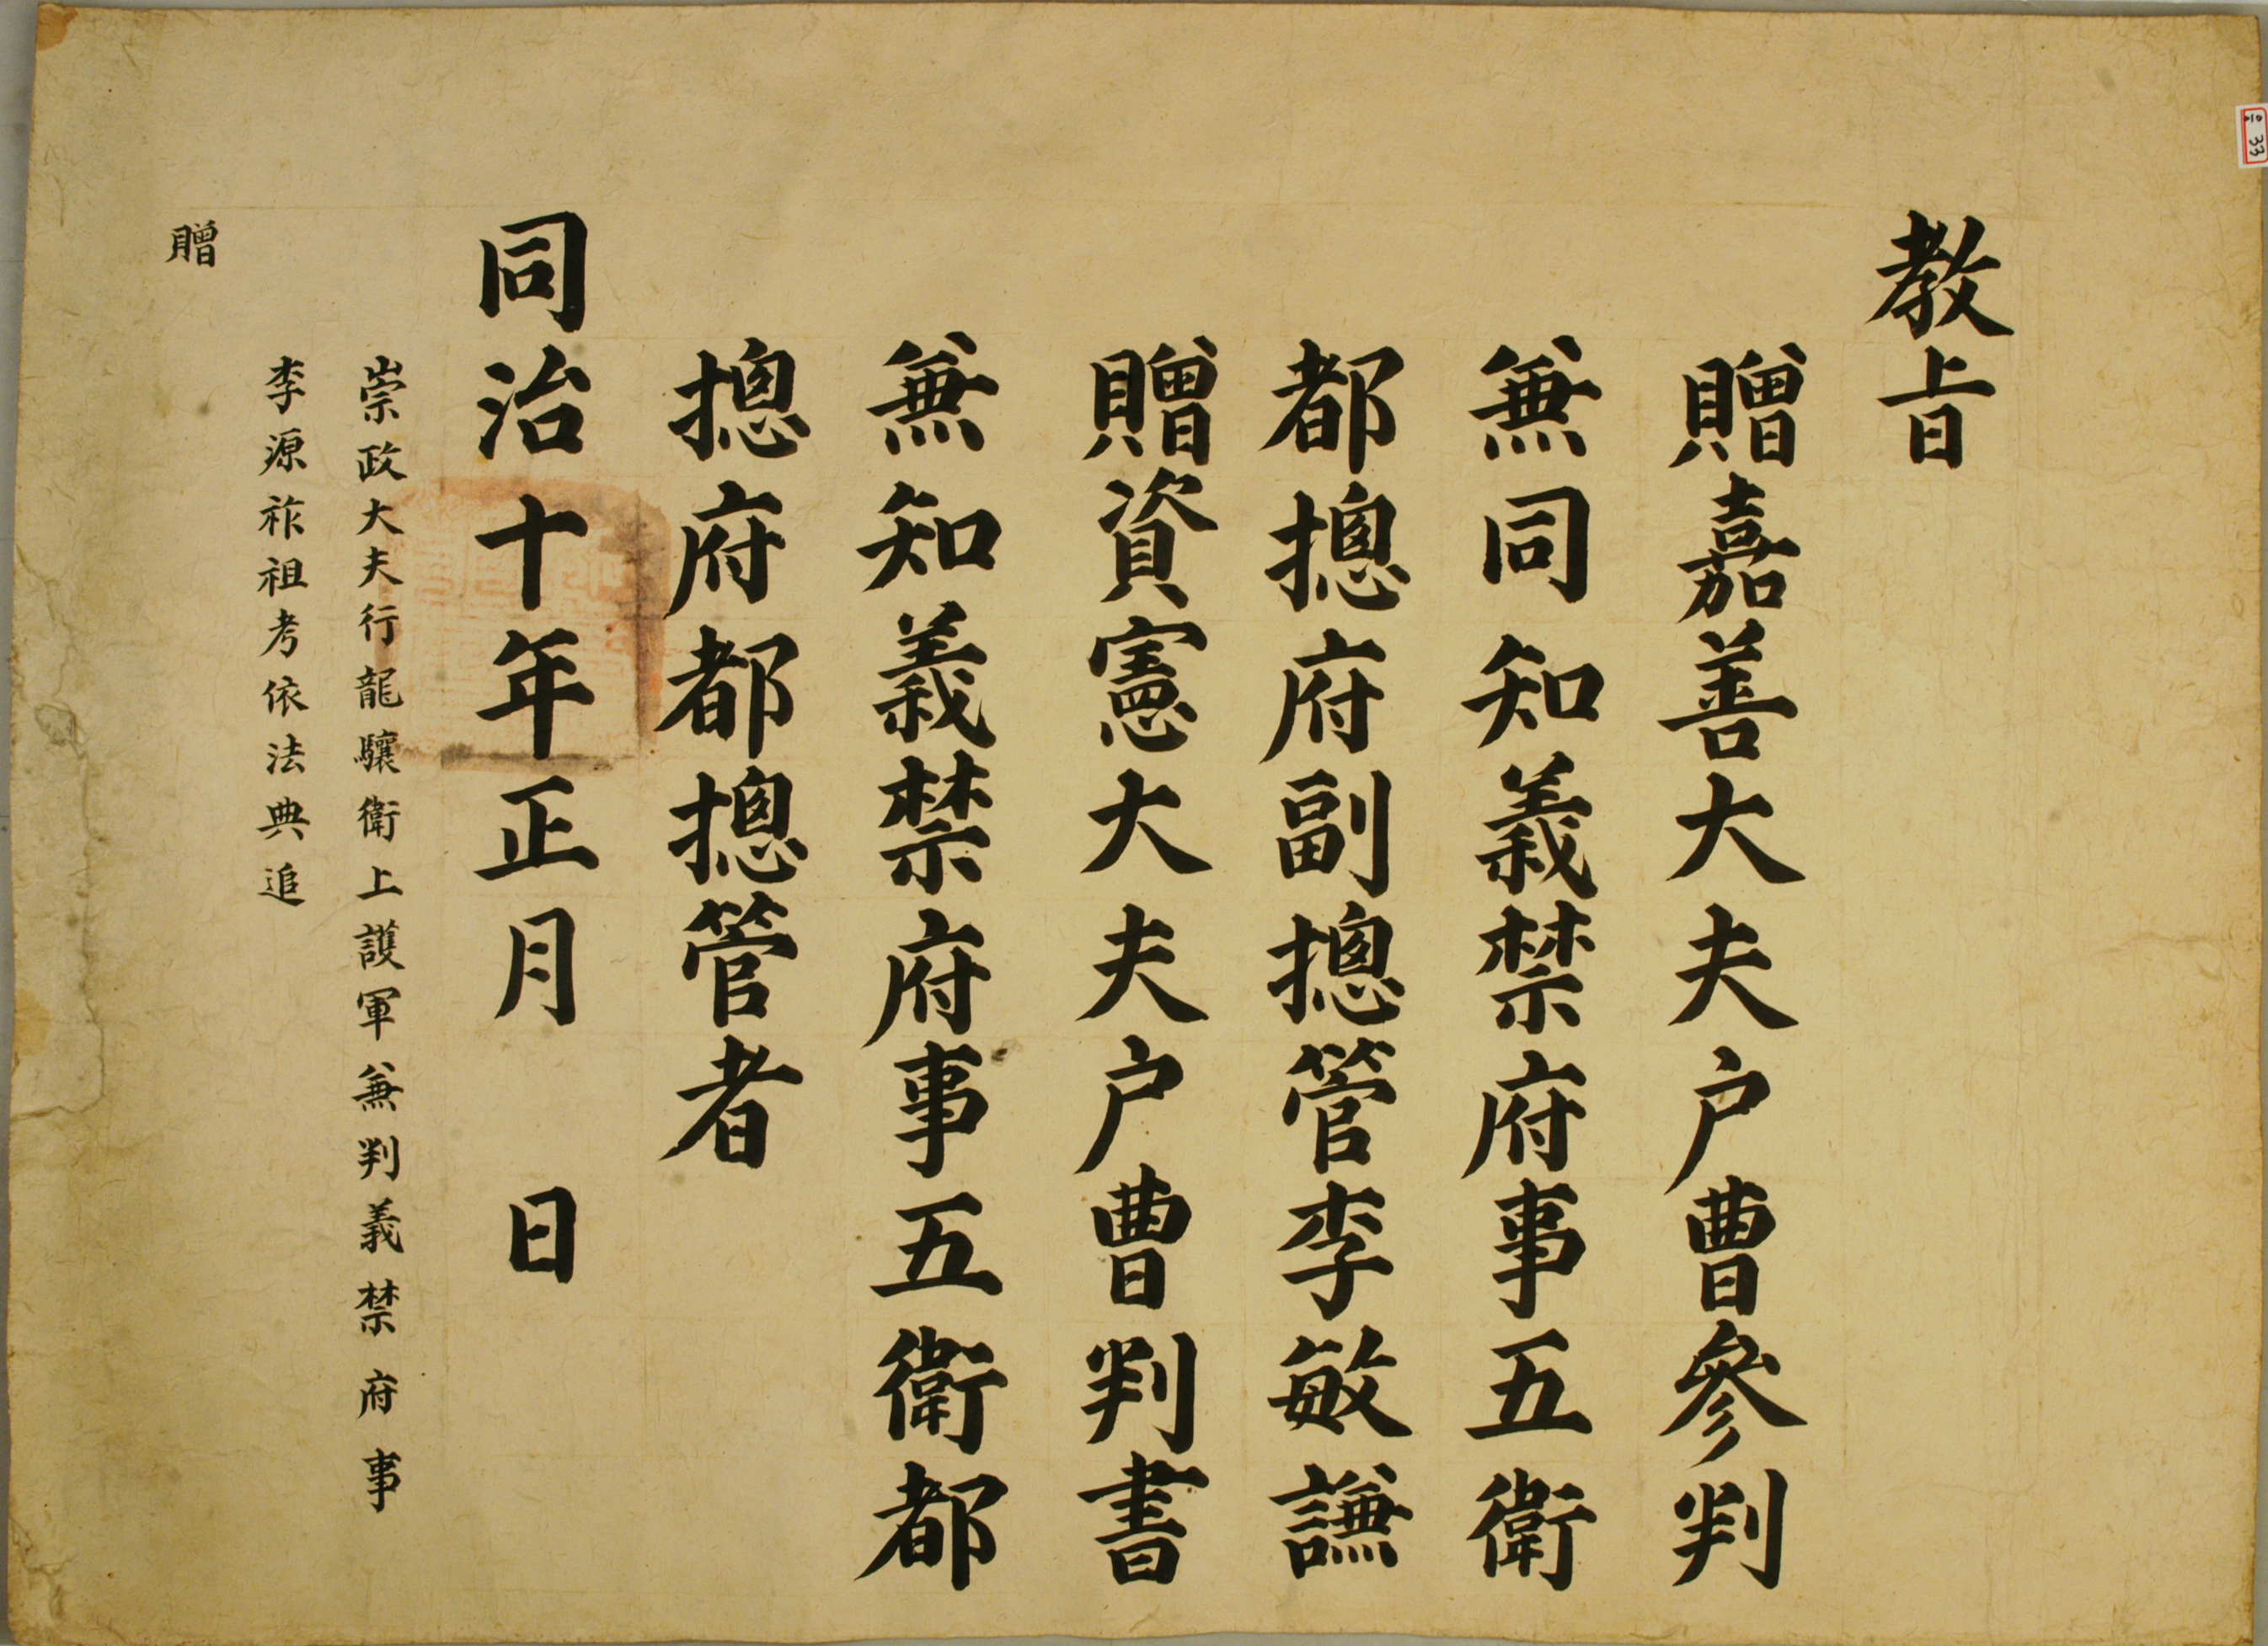 教旨
贈嘉善大夫户曹叅判
兼同知義禁府事五衛
都摠府副摠管李敏謙
贈資憲大夫户曹判書
兼知義禁府事五衛都
摠府都摠管者
同治十年正月 日
崇政大夫行龍驤衛上護軍兼判義禁府事
李源祚祖考依法典追
贈
33